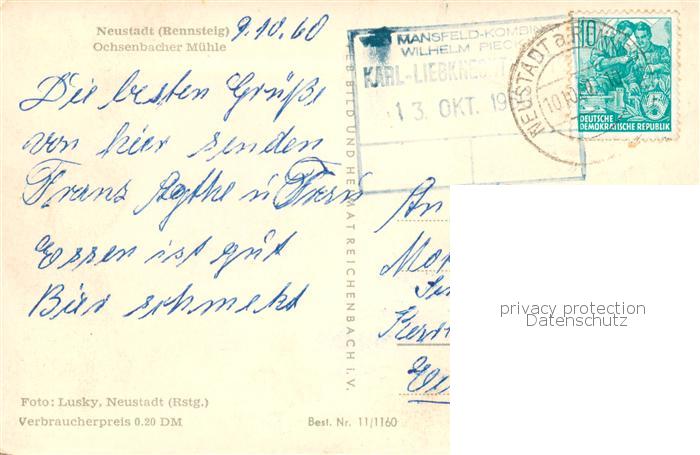 Neustadt (Rennsteig)
Ochsenbacher Mühle
9.10.60
Die besten Grüße
von hier senden
Franz Agthe u Frau
Essen ist gut
Bier schmekt
Foto: Lusky, Neustadt (Rstg.)
Verbraucherpreis 0.20 DM
Best. Nr. 11/1160
BILD UND HEIMAT REICHENBACH i. V.
MANSFELD-KOMBIN
WILHELM PIECK
KARL-LIEBKNECHT
13. OKT. 19
NEUSTADT a. RENN
10
5
DEUTSCHE
DEMOKRATISCHE REPUBLIK
An
privacy protection
Datenschutz